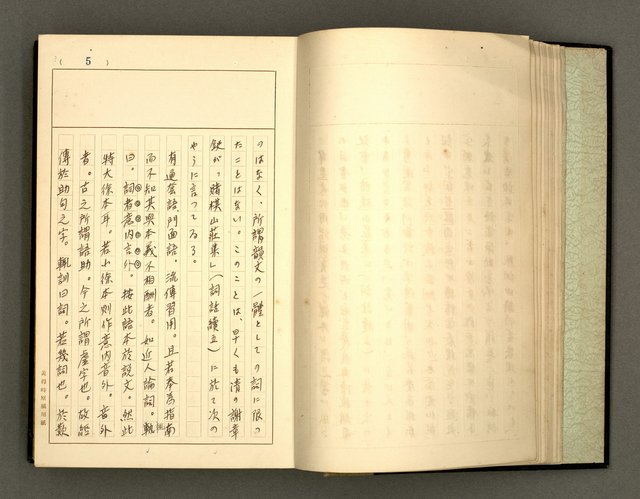 ( 5 )
のはなく、所謂韻文の一體としての詞に限つ
たことはない。このことは、早くも清の謝章
鋌が「賭棋山莊集」(詞話續五)に於て次の
やうに言つてゐる。
有通套語門面語。流傳習用。且若奉為指南
而不知其與本義不相酬者。如近人論詞。輒
曰。詞者意内言外。按此語本於說文。然此
特大徐本耳。若小徐本則作意内音外。音外
者。古之所謂語助。今之所謂虛字也。故經
傳於助句之字。輒訓曰詞。若幾詞也。於歎